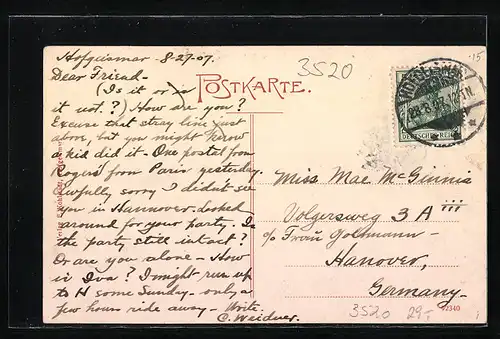 Hofgeismar 8-27-07.
Dear Friend -
(Is it or is
it not?) How are you?
Excuse that stray line just
above, but you might know
a kid did it - One postal from
Rogers from Paris yesterday.
Awfully sorry I didn't see
you in Hannover. Looked
around for your party. Is
the party still intact?
Or are you alone - How
is Iva? I might run up
to H some Sunday - only a
few hours ride away - Write.
C. Weidner.
POSTKARTE.
3520
15
DEUTSCHES REICH
Miss Mae McGinnis
Volgersweg 3 A iii
c/o Frau Goltmann -
Hanover,
Germany -
3520 29,-